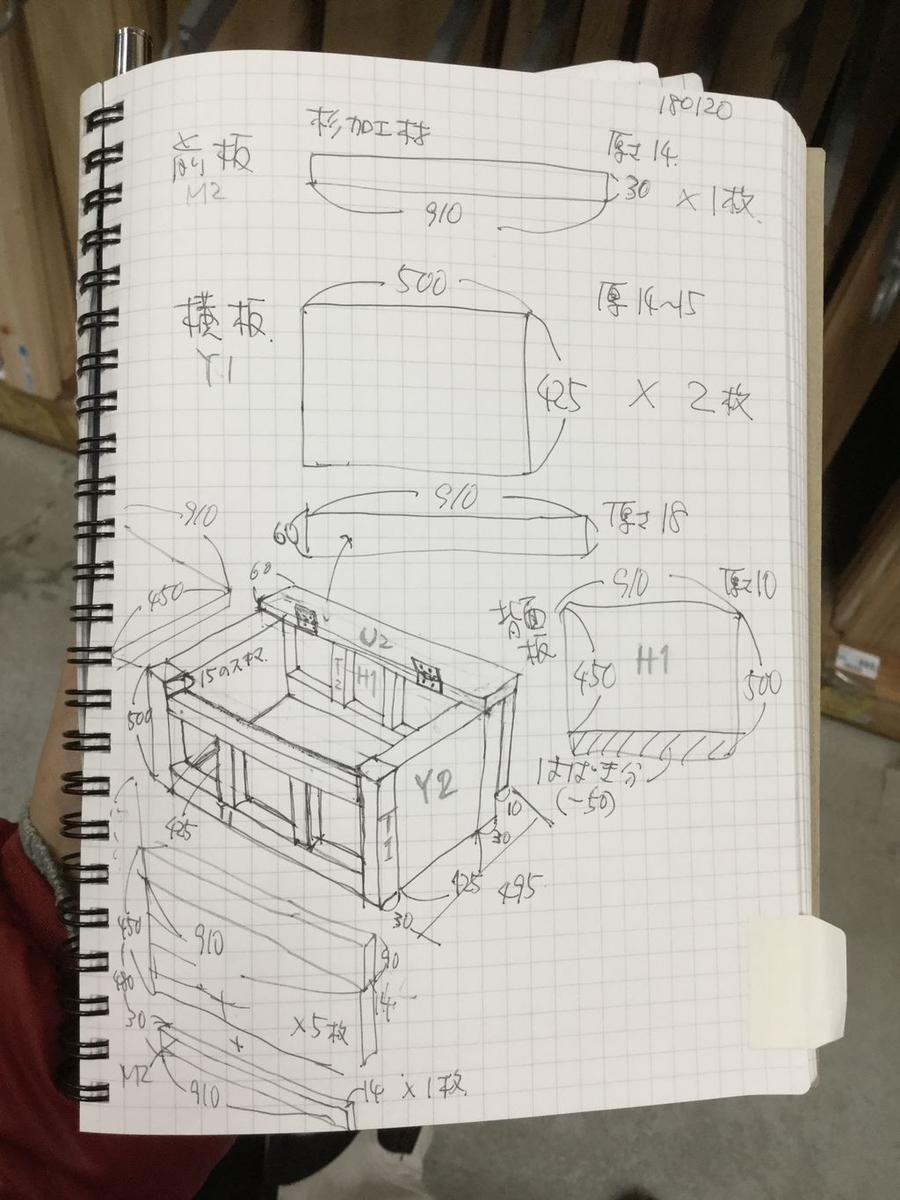 180120
杉加工材
前板
M2
厚さ14
30
×1枚
910
500
横板
Y1
厚14~15
425
× 2枚
910
60
厚さ18
910
450
60
U2
15のスキマ
T2
H1
500
Y2
425
T1
T1
10
30
425
495
30
背面板
910
厚さ10
450
H1
500
はばき分
(-50)
450
480
910
90
14
×5枚
30
M2
910
14 ×1枚